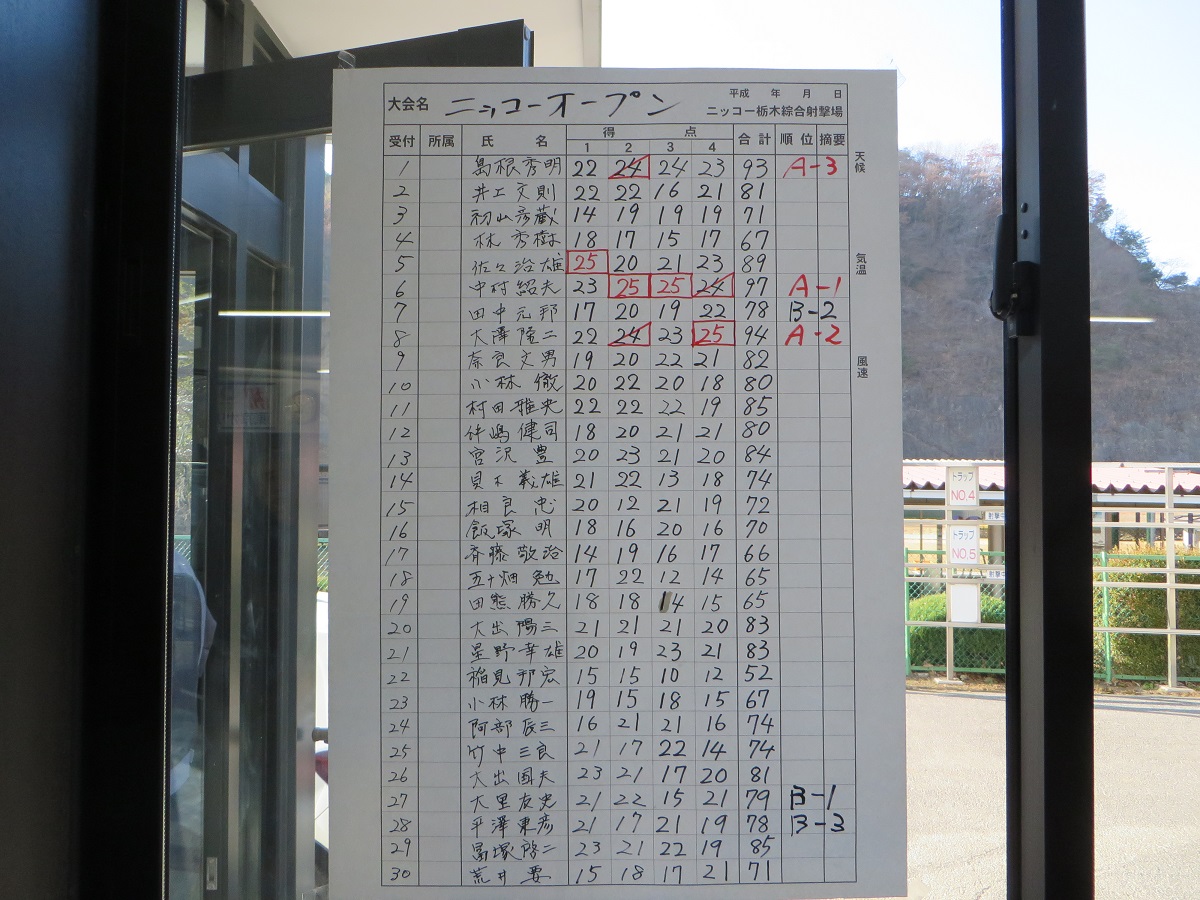 大会名 ニッコーオープン 平成 年 月 日
ニッコー栃木綜合射撃場
受付 所属 氏 名 得 点 合計 順位 摘要
1 2 3 4
1 島根秀明 22 24 24 23 93 A-3
2 井上文則 22 22 16 21 81
3 初山彦蔵 14 19 19 19 71
4 林秀樹 18 17 15 17 67
5 佐々治雄 25 20 21 23 89
6 中村紹夫 23 25 25 24 97 A-1
7 田中元邦 17 20 19 22 78 B-2
8 大澤隆二 22 24 23 25 94 A-2
9 奈良文男 19 20 22 21 82
10 小林徹 20 22 20 18 80
11 村田雅央 22 22 22 19 85
12 伴嶋健司 18 20 21 21 80
13 宮沢豊 20 23 21 20 84
14 貝木義雄 21 22 13 18 74
15 相良忠 20 12 21 19 72
16 飯塚明 18 16 20 16 70
17 斉藤敬治 14 19 16 17 66
18 五十畑勉 17 22 12 14 65
19 田熊勝久 18 18 14 15 65
20 大出陽三 21 21 21 20 83
21 星野幸雄 20 19 23 21 83
22 稲見邦宏 15 15 10 12 52
23 小林勝一 19 15 18 15 67
24 阿部辰三 16 21 21 16 74
25 竹中三良 21 17 22 14 74
26 大出国夫 23 21 17 20 81
27 大里友史 21 22 15 21 79 B-1
28 平澤東彦 21 17 21 19 78 B-3
29 冨塚啓二 23 21 22 19 85
30 荒井要 15 18 17 21 71
天候
気温
風速
トラップ
NO.4
トラップ
NO.5